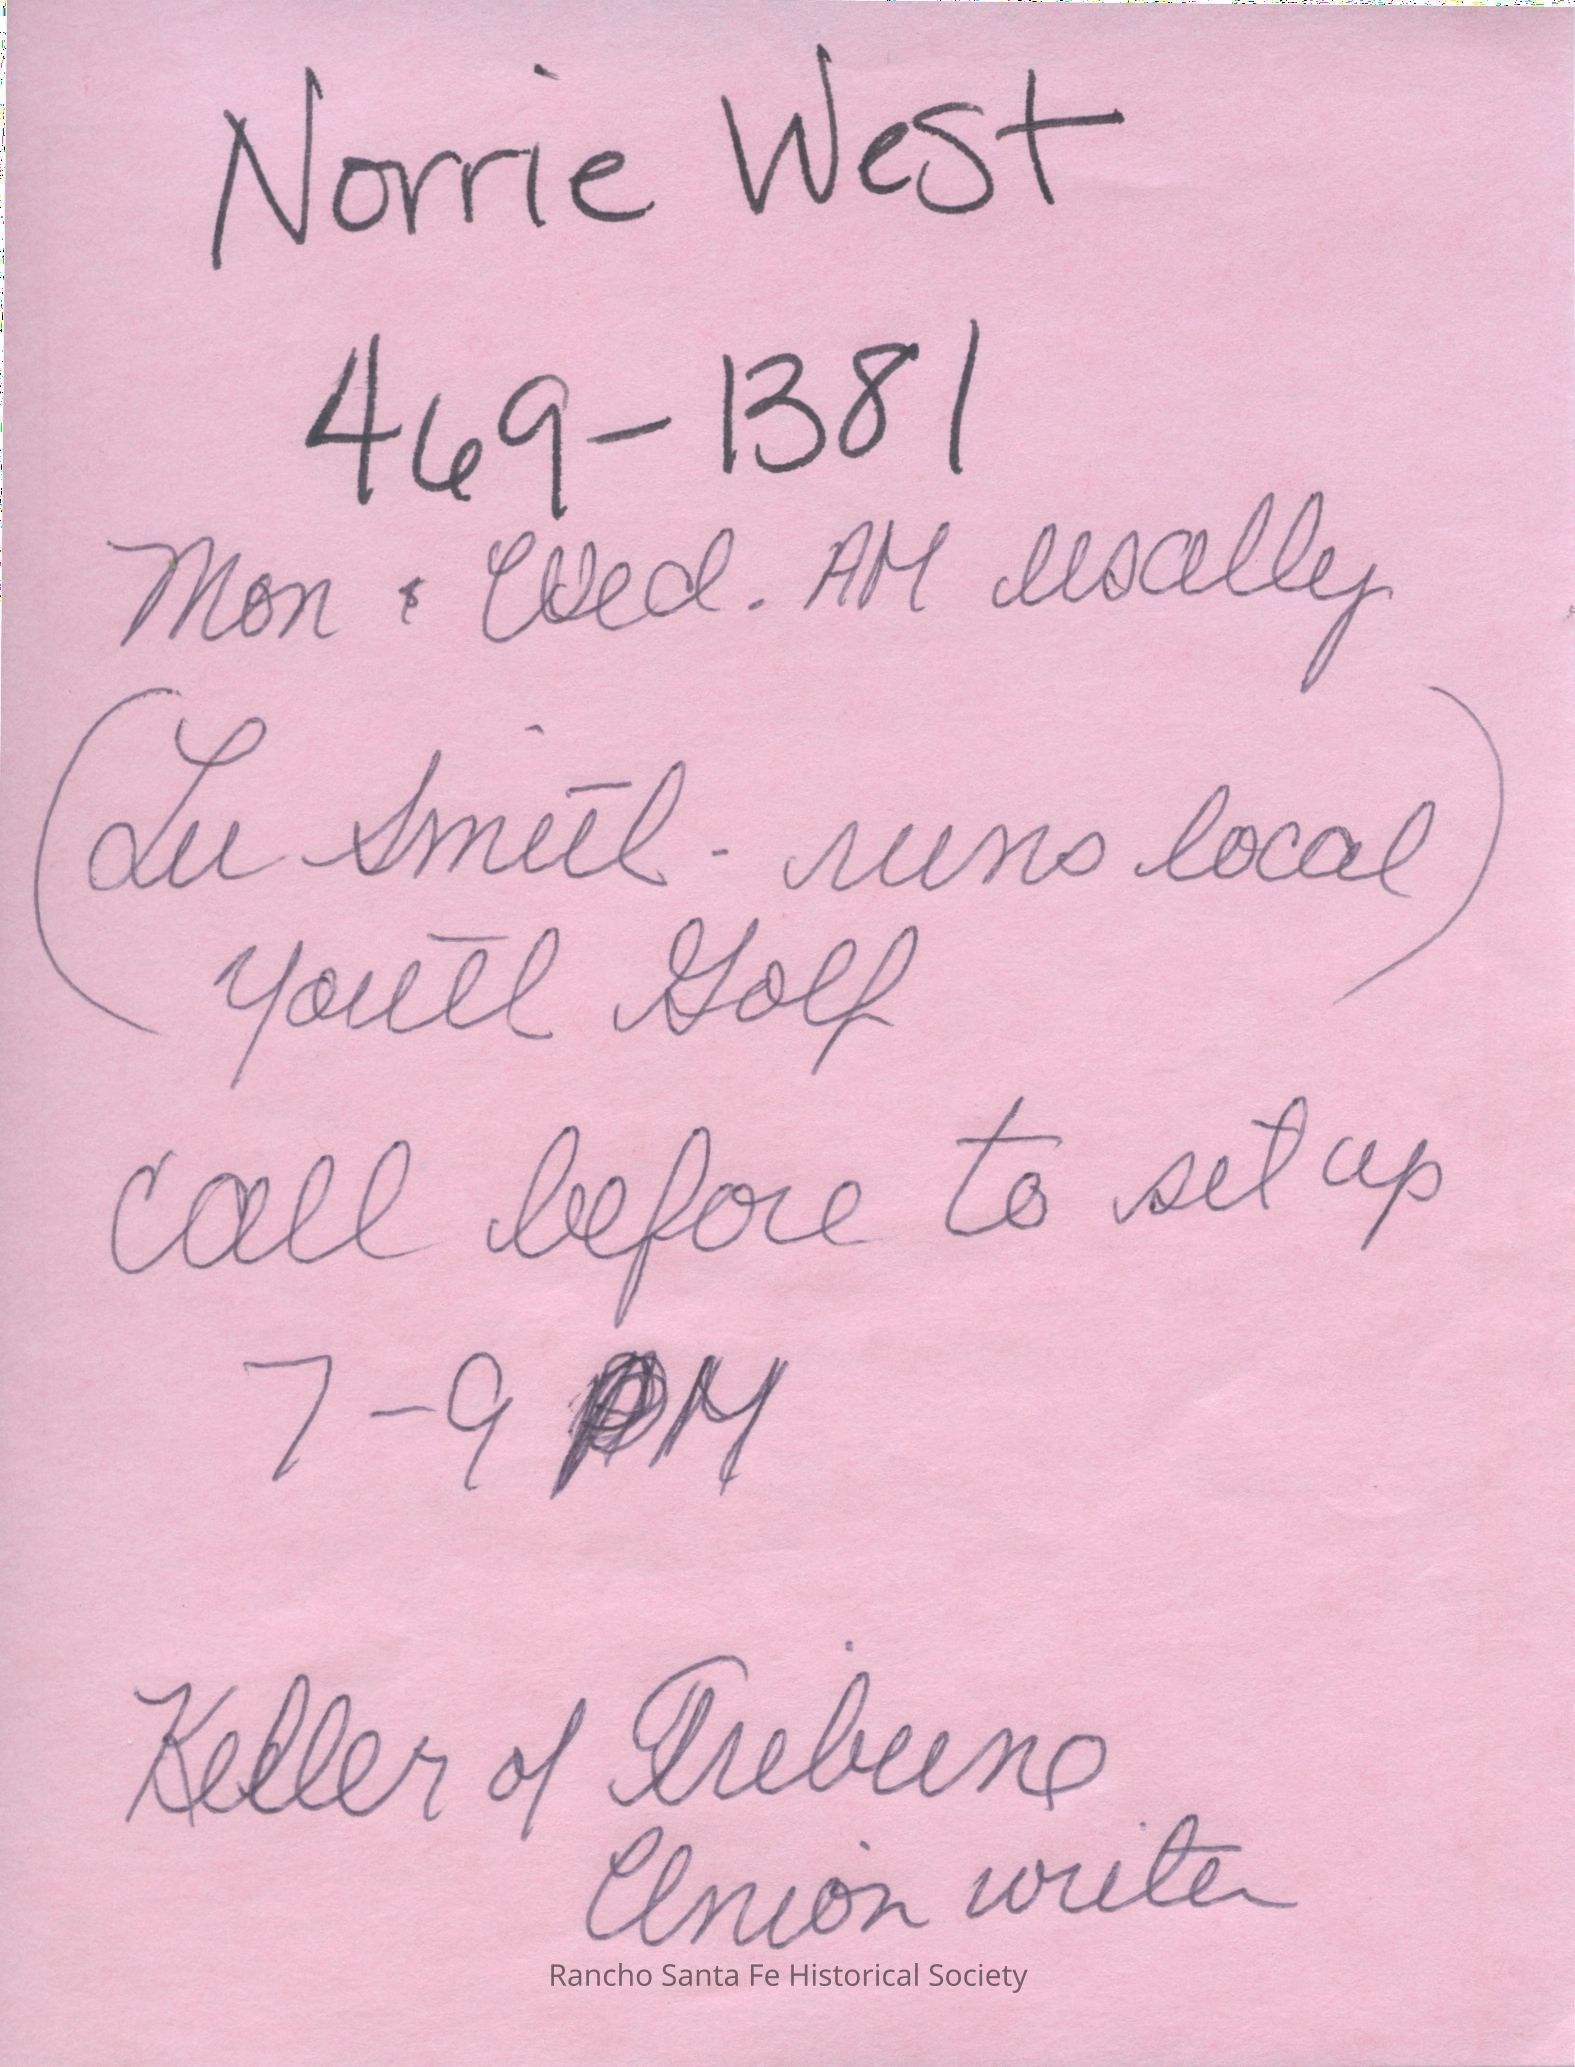 Norrie West
469-1381
Mon & Wed. AM usally
(Lu Smith - runs local
youth Golf)
Call before to set up
7-9 PM
Keller of Tribune
Union writer
Rancho Santa Fe Historical Society